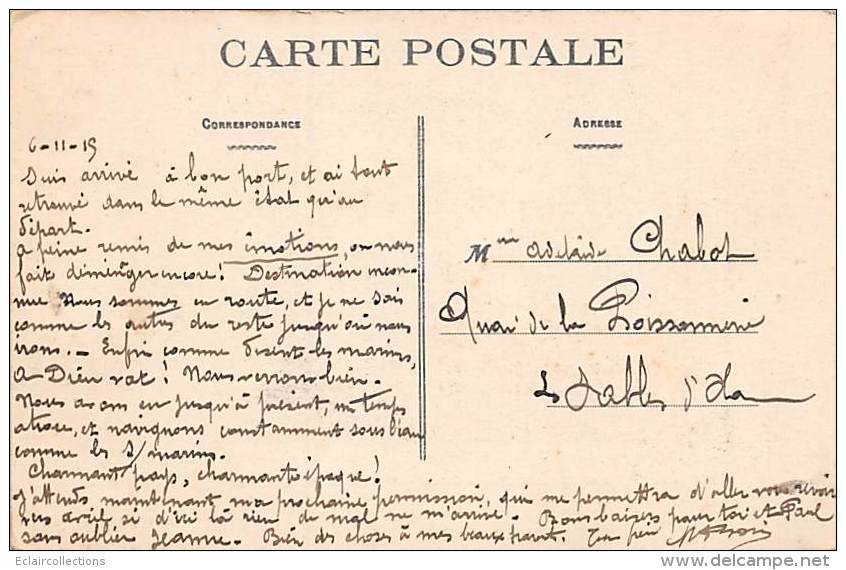 CARTE POSTALE
CORRESPONDANCE
6-11-15
Suis arrivé à bon port, et ai tout
retrouvé dans le même état qu'au
départ.
A peine remis de mes émotions, on nous
fait déménager encore! Destination incon-
nue Nous sommes en route, et je ne sais
comme les autres du reste jusqu'où nous
irons. - Enfin comme disent les marins,
A Dieu vat! Nous verrons bien.
Nous avons eu jusqu'à présent, un temps
atroce, et navignons constamment sous l'eau
comme les S/marins.
Charmant pays, charmante époque!
J'attends maintenant ma prochaine permission, qui me permettra d'aller vous revoir
vers avril, si d'ici là rien de mal ne m'arrive. Bons baisers pour toi et Paul
sans oublier Jeanne. Bien des choses à mes beaux parents. Ton
ADRESSE
Mme Adelaide Chabot
Quai de la Poissonnerie
Les Sables d'Olonne
Eclaircollections
delcampe.net